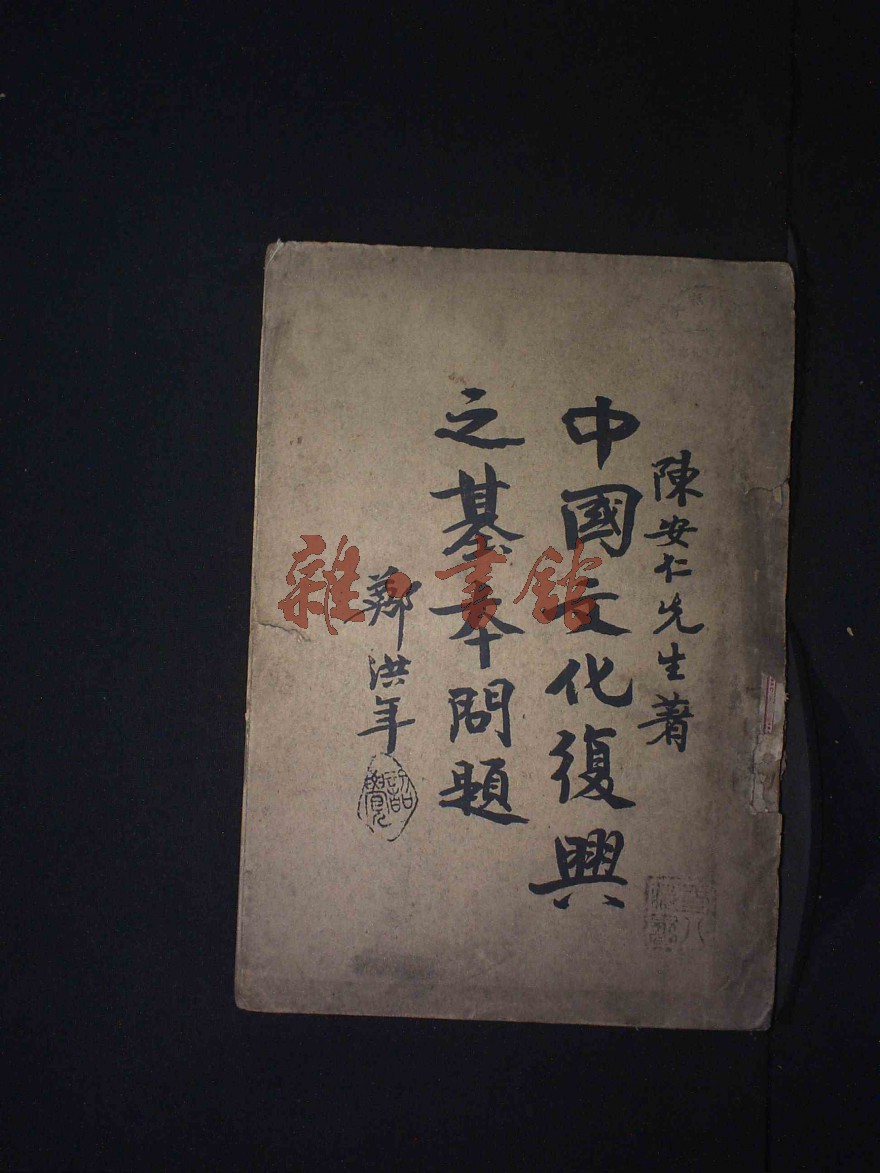 陳安仁先生著
中國文化復興
之基本問題
鄭洪年
雜·書館